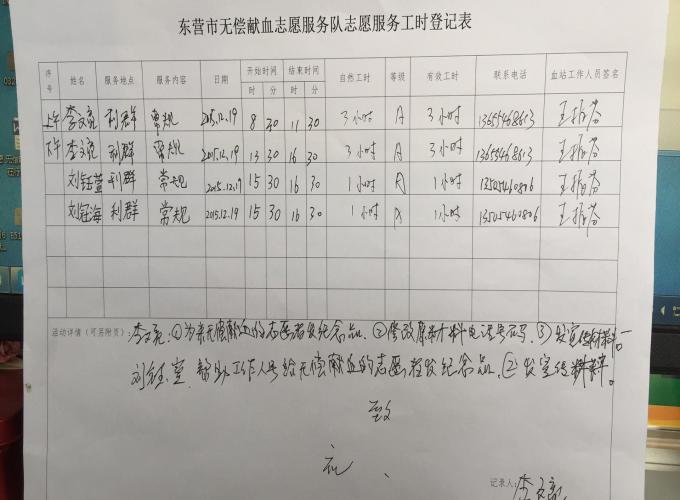 东营市无偿献血志愿服务队志愿服务工时登记表
序号 姓名 服务地点 服务内容 日期 开始时间 结束时间 自然工时 等级 有效工时 联系电话 血站工作人员签名
时 分 时 分
上午 李文亮 利群 常规 2015.12.19 8 30 11 30 3小时 A 3小时 13655468613
下午 李文亮 利群 常规 2015.12.19 13 30 16 30 3小时 A 3小时 13655468613
刘钰萱 利群 常规 2015.12.19 15 30 16 30 1小时 A 1小时 13505460806
刘钰海 利群 常规 2015.12.19 15 30 16 30 1小时 A 1小时 13505460806
活动详情(可另附页): 李文亮:①为来无偿献血的志愿者发纪念品、②修改 电话号 ③发宣传材料。
刘钰萱 帮助工作人员给无偿献血的志愿者发纪念品、②发宣传材料。
致
礼、
记录人: 李文亮